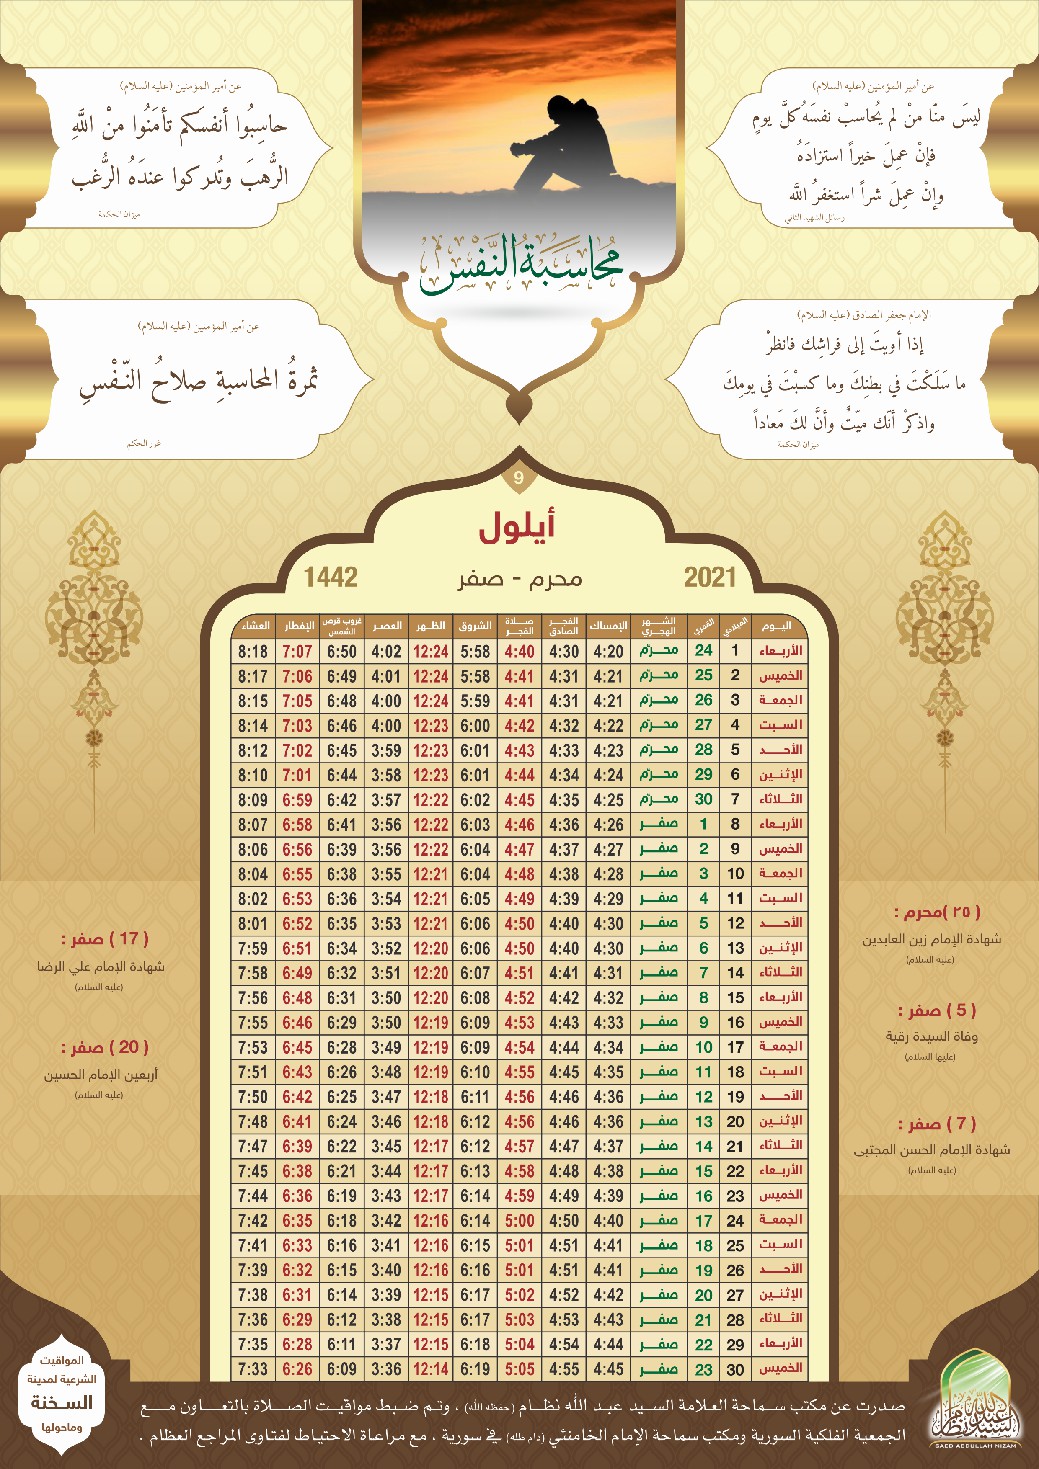 عن أمير المؤمنين (عليه السلام)
ليسَ منّا منْ لم يُحاسبْ نفسَهُ كلَّ يومٍ
فإنْ عمِلَ خيراً استزادَهُ
وإنْ عمِلَ شراً استغفرُ اللّه
رسائل الشهيد الثاني
عن أمير المؤمنين (عليه السلام)
حاسِبُوا أنفسَكم تأمَنُوا منْ اللَّهِ
الرَّهبَ وتُدركوا عندَهُ الرَّغب
ميزان الحكمة
مُحاسَبَةُ النَّفْسِ
الإمام جعفر الصادق (عليه السلام)
إذا أويتَ إلى فراشِك فانظرْ
ما سَلَكْتَ في بطنِكَ وما كسبْتَ في يومِكَ
واذكرْ أنّك ميّتٌ وأنَّ لكَ مَعاداً
ميزان الحكمة
عن أمير المؤمنين (عليه السلام)
ثمرةُ المحاسبةِ صلاحُ النّفْسِ
غرر الحكم
9
أيلول
2021 محرم - صفر 1442
اليوم الميلادي القمري الشهر الهجري الإمساك الفجر الصادق صلاة الفجر الشروق الظهر العصر غروب قرص الشمس الإفطار العشاء
الأربعاء 1 24 محرم 4:20 4:30 4:40 5:58 12:24 4:02 6:50 7:07 8:18
الخميس 2 25 محرم 4:21 4:31 4:41 5:58 12:24 4:01 6:49 7:06 8:17
الجمعة 3 26 محرم 4:21 4:31 4:41 5:59 12:24 4:00 6:48 7:05 8:15
السبت 4 27 محرم 4:22 4:32 4:42 6:00 12:23 4:00 6:46 7:03 8:14
الأحد 5 28 محرم 4:23 4:33 4:43 6:01 12:23 3:59 6:45 7:02 8:12
الإثنين 6 29 محرم 4:24 4:34 4:44 6:01 12:23 3:58 6:44 7:01 8:10
الثلاثاء 7 30 محرم 4:25 4:35 4:45 6:02 12:22 3:57 6:42 6:59 8:09
الأربعاء 8 1 صفر 4:26 4:36 4:46 6:03 12:22 3:56 6:41 6:58 8:07
الخميس 9 2 صفر 4:27 4:37 4:47 6:04 12:22 3:56 6:39 6:56 8:06
الجمعة 10 3 صفر 4:28 4:38 4:48 6:04 12:21 3:55 6:38 6:55 8:04
السبت 11 4 صفر 4:29 4:39 4:49 6:05 12:21 3:54 6:36 6:53 8:02
الأحد 12 5 صفر 4:30 4:40 4:50 6:06 12:21 3:53 6:35 6:52 8:01
الإثنين 13 6 صفر 4:30 4:40 4:50 6:06 12:20 3:52 6:34 6:51 7:59
الثلاثاء 14 7 صفر 4:31 4:41 4:51 6:07 12:20 3:51 6:32 6:49 7:58
الأربعاء 15 8 صفر 4:32 4:42 4:52 6:08 12:20 3:50 6:31 6:48 7:56
الخميس 16 9 صفر 4:33 4:43 4:53 6:09 12:19 3:50 6:29 6:46 7:55
الجمعة 17 10 صفر 4:34 4:44 4:54 6:09 12:19 3:49 6:28 6:45 7:53
السبت 18 11 صفر 4:35 4:45 4:55 6:10 12:19 3:48 6:26 6:43 7:51
الأحد 19 12 صفر 4:36 4:46 4:56 6:11 12:18 3:47 6:25 6:42 7:50
الإثنين 20 13 صفر 4:36 4:46 4:56 6:12 12:18 3:46 6:24 6:41 7:48
الثلاثاء 21 14 صفر 4:37 4:47 4:57 6:12 12:17 3:45 6:22 6:39 7:47
الأربعاء 22 15 صفر 4:38 4:48 4:58 6:13 12:17 3:44 6:21 6:38 7:45
الخميس 23 16 صفر 4:39 4:49 4:59 6:14 12:17 3:43 6:19 6:36 7:44
الجمعة 24 17 صفر 4:40 4:50 5:00 6:14 12:16 3:42 6:18 6:35 7:42
السبت 25 18 صفر 4:41 4:51 5:01 6:15 12:16 3:41 6:16 6:33 7:41
الأحد 26 19 صفر 4:41 4:51 5:01 6:16 12:16 3:40 6:15 6:32 7:39
الإثنين 27 20 صفر 4:42 4:52 5:02 6:17 12:15 3:39 6:14 6:31 7:38
الثلاثاء 28 21 صفر 4:43 4:53 5:03 6:17 12:15 3:38 6:12 6:29 7:36
الأربعاء 29 22 صفر 4:44 4:54 5:04 6:18 12:15 3:37 6:11 6:28 7:35
الخميس 30 23 صفر 4:45 4:55 5:05 6:19 12:14 3:36 6:09 6:26 7:33
(٢٥)محرم :
شهادة الإمام زين العابدين
(عليه السلام)
( 5 ) صفر :
وفاة السيدة رقية
(عليها السلام)
( 7 ) صفر :
شهادة الإمام الحسن المجتبى
(عليه السلام)
( 17 ) صفر :
شهادة الإمام علي الرضا
(عليه السلام)
( 20 ) صفر :
أربعين الإمام الحسين
(عليه السلام)
صدرت عن مكتب سماحة العلامة السيد عبد الله نظام (حفظه الله) ، وتم ضبط مواقيت الصلاة بالتعاون مع
الجمعية الفلكية السورية ومكتب سماحة الإمام الخامنئي (دام ظله) في سورية ، مع مراعاة الاحتياط لفتاوى المراجع العظام .
المواقيت
الشرعية لمدينة
السخنة
وماحولها
السيد عبد الله نظام
SAED ABDULLAH NIZAM